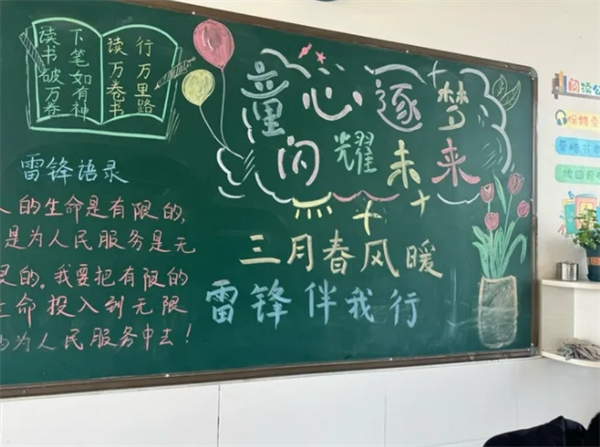 读书破万卷
下笔如有神
读万卷书
行万里路
童心逐梦
闪耀未来
三月春风暖
雷锋伴我行
雷锋语录
人的生命是有限的,
是为人民服务是无
限的。我要把有限的
生命投入到无限
为人民服务中去!
阅读公